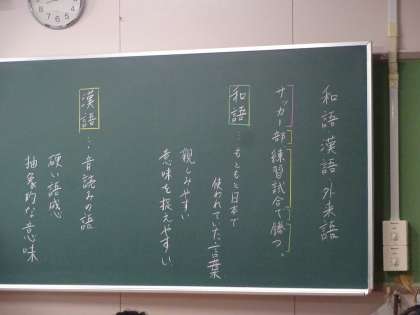 和語・漢語・外来語
サッカー部練習試合で勝つ。
和語…もともと日本で
使われていた言葉
親しみやすい
意味を捉えやすい
漢語…音読みの語
硬い語感
抽象的な意味